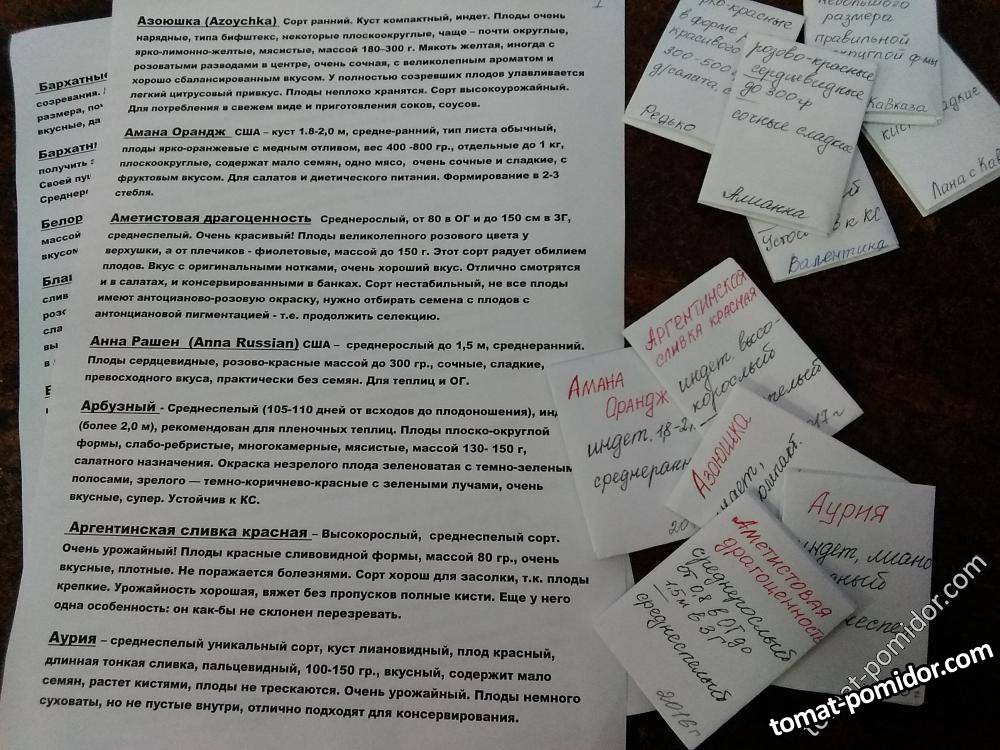 1
Азоюшка (Azoychka) Сорт ранний. Куст компактный, индет. Плоды очень
нарядные, типа бифштекс, некоторые плоскоокруглые, чаще – почти округлые,
ярко-лимонно-желтые, мясистые, массой 180–300 г. Мякоть желтая, иногда с
розоватыми разводами в центре, очень сочная, с великолепным ароматом и
хорошо сбалансированным вкусом. У полностью созревших плодов улавливается
легкий цитрусовый привкус. Плоды неплохо хранятся. Сорт высокоурожайный.
Для потребления в свежем виде и приготовления соков, соусов.
Амана Орандж США – куст 1.8-2,0 м, средне-ранний, тип листа обычный,
плоды ярко-оранжевые с медным отливом, вес 400 -800 гр., отдельные до 1 кг,
плоскоокруглые, содержат мало семян, одно мясо, очень сочные и сладкие, с
фруктовым вкусом. Для салатов и диетического питания. Формирование в 2-3
стебля.
Аметистовая драгоценность Среднерослый, от 80 в ОГ и до 150 см в ЗГ,
среднеспелый. Очень красивый! Плоды великолепного розового цвета у
верхушки, а от плечиков - фиолетовые, массой до 150 г. Этот сорт радует обилием
плодов. Вкус с оригинальными нотками, очень хороший вкус. Отлично смотрятся
и в салатах, и консервированными в банках. Сорт нестабильный, не все плоды
имеют антоциано-розовую окраску, нужно отбирать семена с плодов с
антонциановой пигментацией - т.е. продолжить селекцию.
Анна Рашен (Anna Russian) США – среднерослый до 1,5 м, среднеранний.
Плоды сердцевидные, розово-красные массой до 300 гр., сочные, сладкие,
превосходного вкуса, практически без семян. Для теплиц и ОГ.
Арбузный - Среднеспелый (105-110 дней от всходов до плодоношения), инд
(более 2,0 м), рекомендован для пленочных теплиц. Плоды плоско-округлой
формы, слабо-ребристые, многокамерные, мясистые, массой 130- 150 г,
салатного назначения. Окраска незрелого плода зеленоватая с темно-зеленым
полосами, зрелого — темно-коричнево-красные с зелеными лучами, очень
вкусные, супер. Устойчив к КС.
Аргентинская сливка красная – Высокорослый, среднеспелый сорт.
Очень урожайный! Плоды красные сливовидной формы, массой 80 гр., очень
вкусные, плотные. Не поражается болезнями. Сорт хорош для засолки, т.к. плоды
крепкие. Урожайность хорошая, вяжет без пропусков полные кисти. Еще у него
одна особенность: он как-бы не склонен перезревать.
Аурия – среднеспелый уникальный сорт, куст лиановидный, плод красный,
длинная тонкая сливка, пальцевидный, 100-150 гр., вкусный, содержит мало
семян, растет кистями, плоды не трескаются. Очень урожайный. Плоды немного
суховаты, но не пустые внутри, отлично подходят для консервирования.
Бархатные
созревания.
размера, поч
вкусные, да
Бархатн
получить
Своей пуш
Среднер
Белор
массой
вкусом
Благ
слив
розо
сла
вы
в
рко-красные
в форме
красивого
300-500
д/салата, с
Редько
небольшого
размера
правильной
округлой ф-мы
Кавказа
розово-красные
сердцевидные
до 300гр
сочные сладкие
Алианна
сладкие
кис
Лана с Кав
Устой в к КС
Валентина
Аргентинская
сливка красная
индет. высо-
корослый
спелый
17г
Амана
Орандж
индет. 1,8-2
среднеран
20
Азоюшка
Аурия
индет, лиано
Аметистовая
драгоценность
среднерослый
от 0,8 в ОГ до
1.5 м в ЗГ
среднеспелый
2016г
tomat-pomidor.com
tomat-pomidor.com